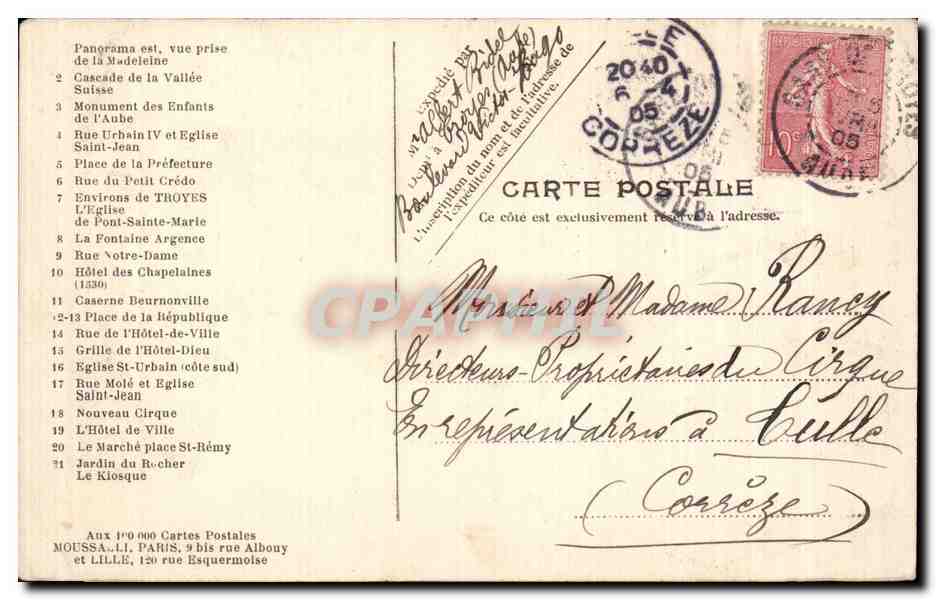 Panorama est, vue prise
de la Madeleine
2 Cascade de la Vallée
Suisse
3 Monument des Enfants
de l'Aube
4 Rue Urbain IV et Eglise
Saint-Jean
5 Place de la Préfecture
6 Rue du Petit Crédo
7 Environs de TROYES
L'Eglise
de Pont-Sainte-Marie
8 La Fontaine Argence
9 Rue Notre-Dame
10 Hôtel des Chapelaines
(1530)
11 Caserne Beurnonville
12-13 Place de la République
14 Rue de l'Hôtel-de-Ville
15 Grille de l'Hôtel-Dieu
16 Eglise St-Urbain (côté sud)
17 Rue Molé et Eglise
Saint-Jean
18 Nouveau Cirque
19 L'Hôtel de Ville
20 Le Marché place St-Rémy
21 Jardin du Rocher
Le Kiosque
Aux 100 000 Cartes Postales
MOUSSALLI, PARIS, 9 bis rue Albouy
et LILLE, 120 rue Esquermoise
Expédié par
M Albert Bidel
Troyes (Aube)
Boulevard Victor Hugo
L'inscription du nom et de l'adresse de
l'expéditeur est facultative.
20 40
6 -4
05
CORREZE
05
AUB
10
05
AUBE
CARTE POSTALE
Ce côté est exclusivement réservé à l'adresse.
CPAPHIL
Monsieur et Madame Rancy
Directeurs-Propriétaires du Cirque
En représentations à Tulle
(Corrèze)